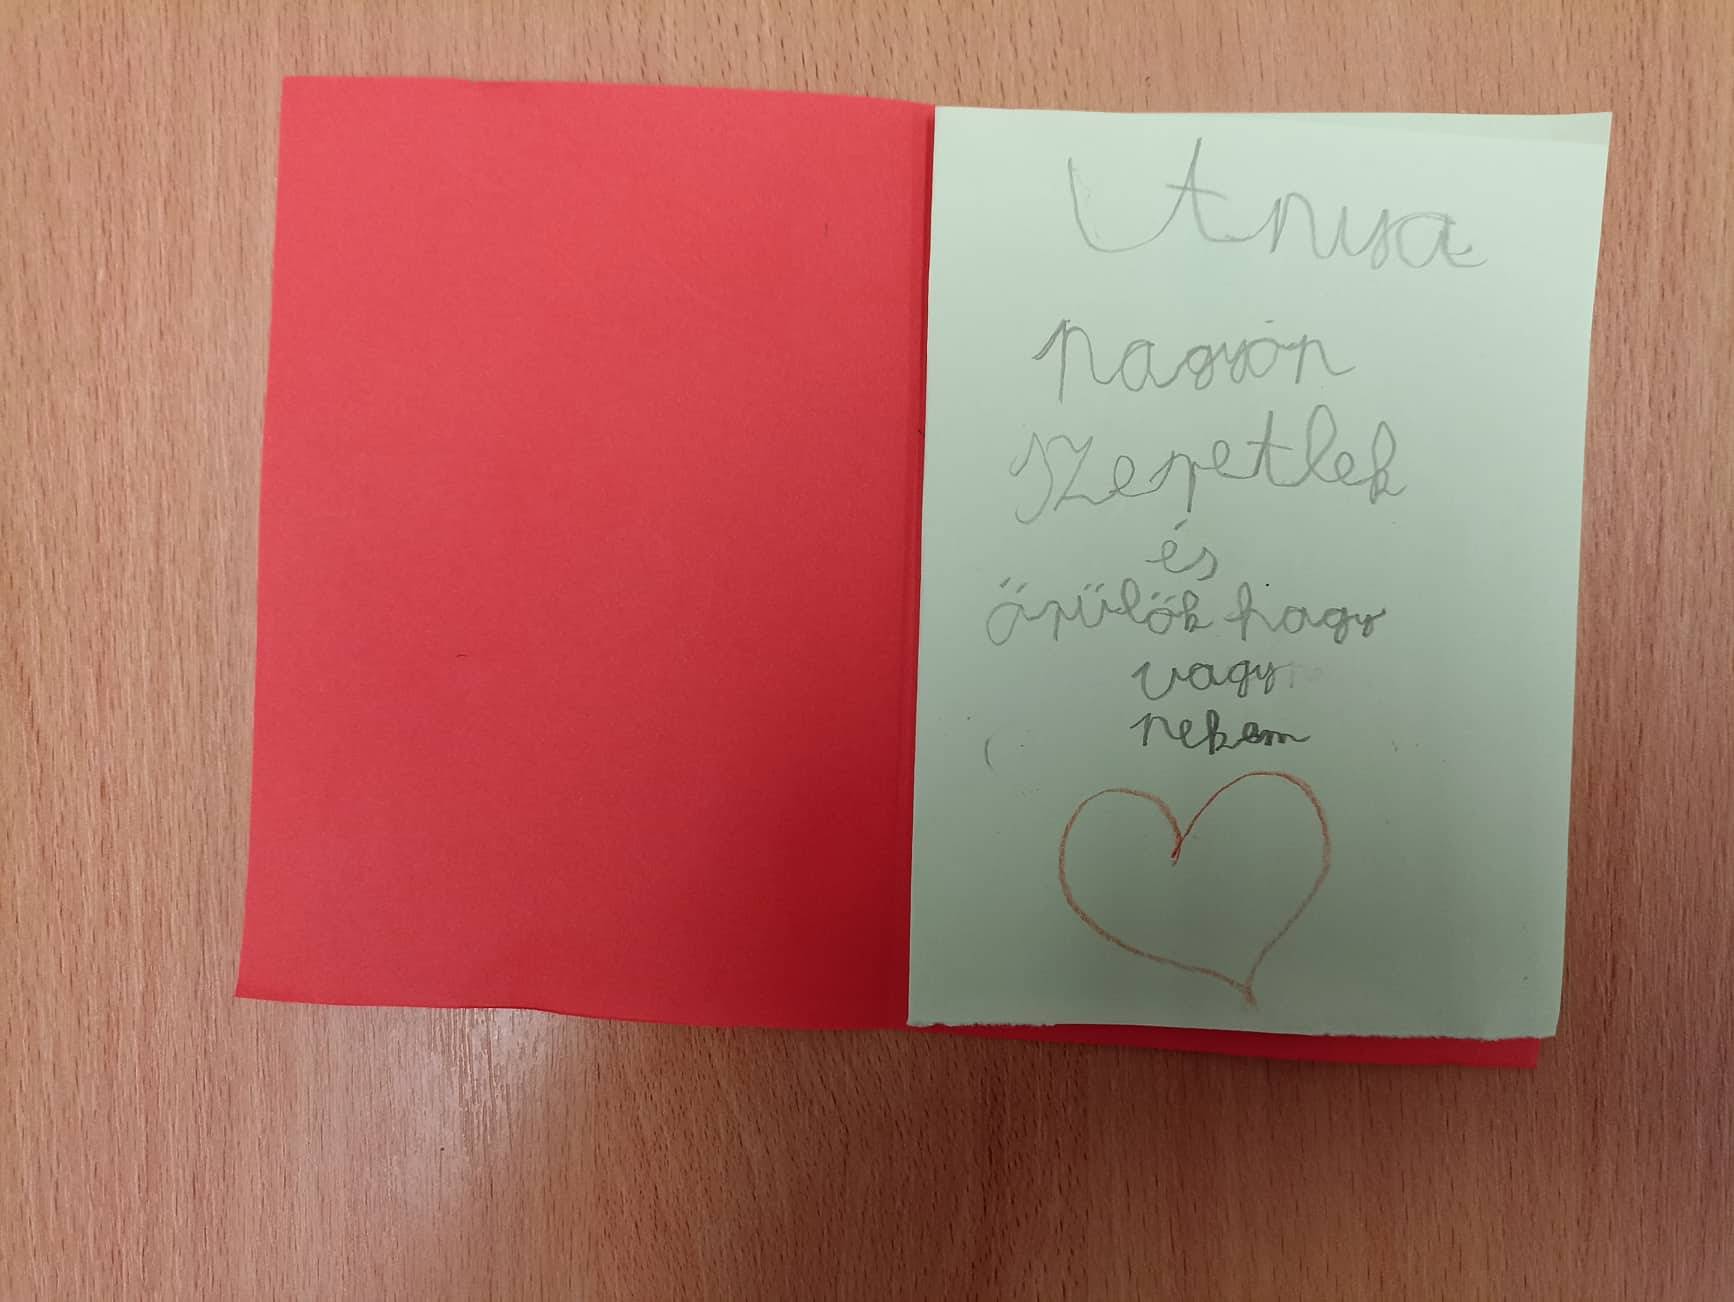 Anya
nagyon
szeretlek
és
örülök hogy
vagy
nekem